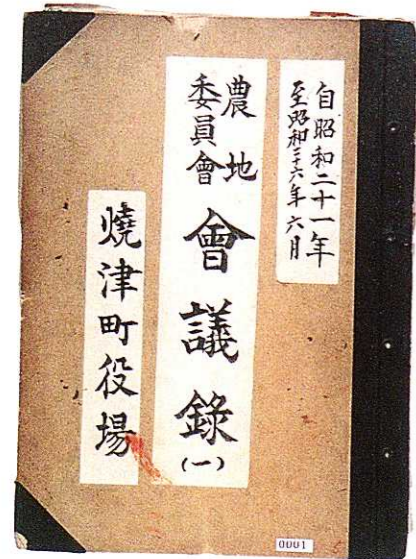 自昭和二十一年
至昭和二十六年六月
農地
委員會
會議録(一)
燒津町役場
0001